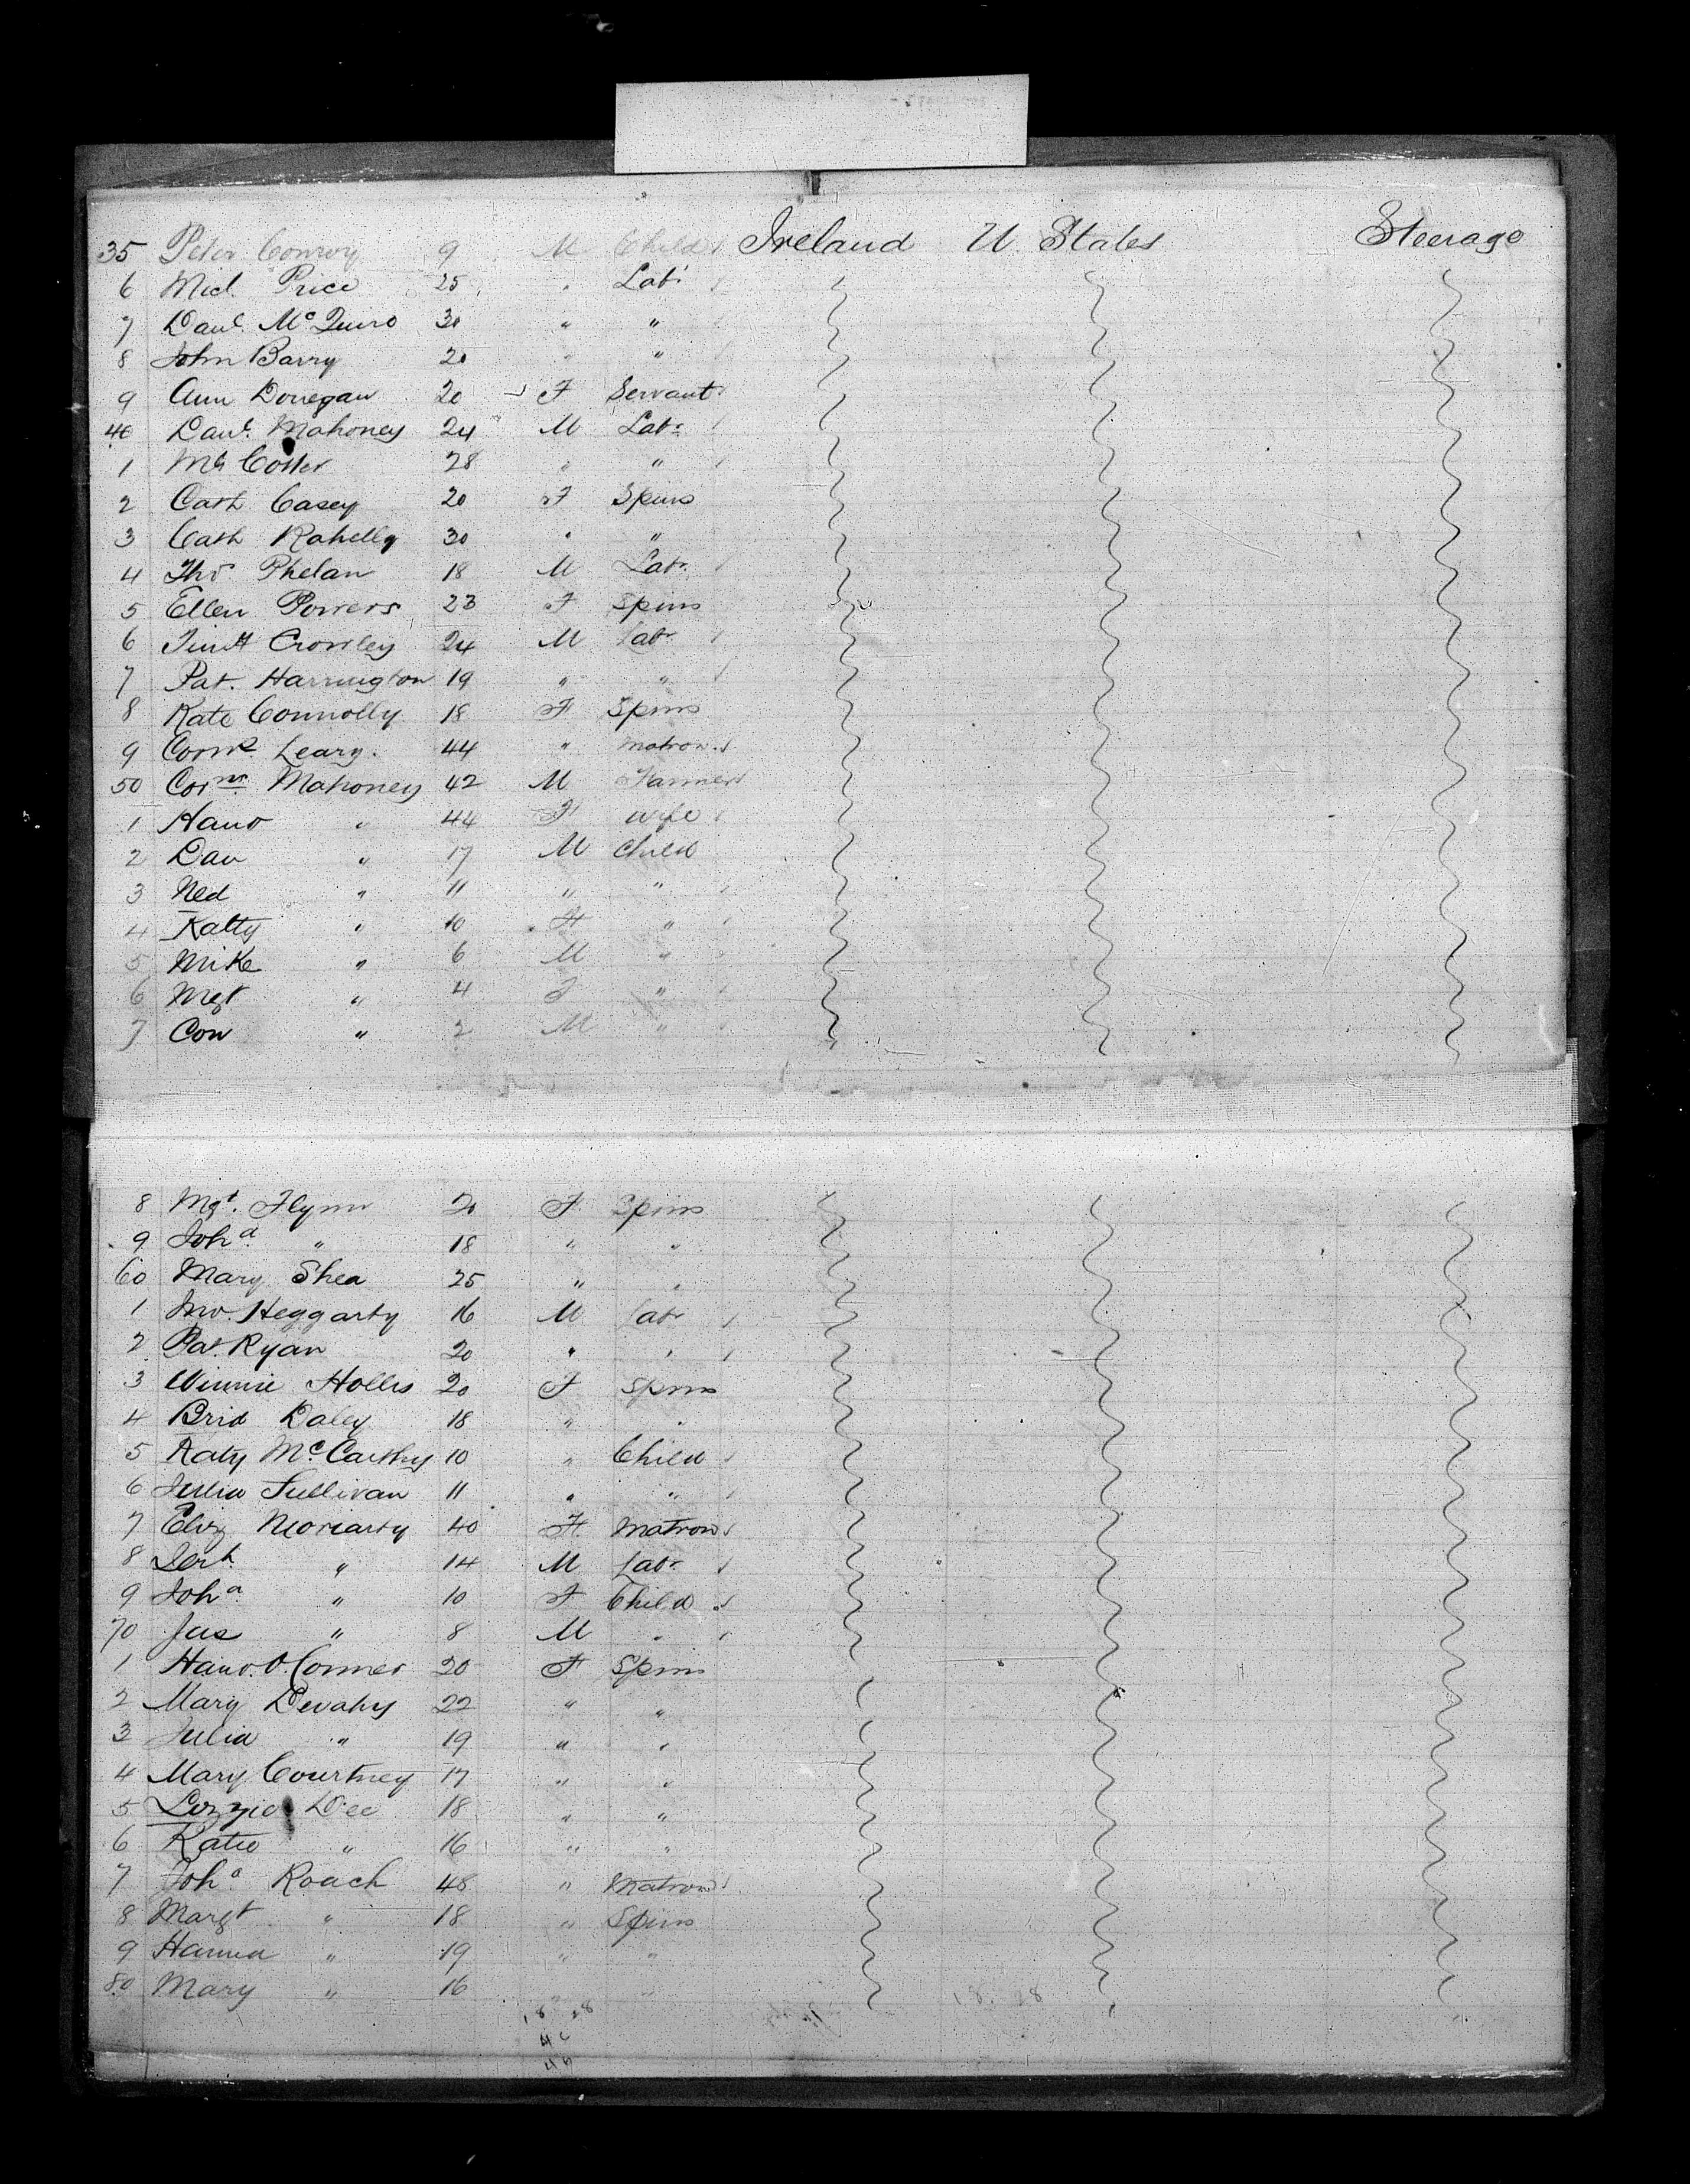 35 Peter Conroy 9 M Child Ireland U. States Steerage
6 Micl. Price 25 " Labr
7 Danl. McQuin 30 " "
8 John Barry 20 " "
9 Ann Donegan 20 F Servant
40 Danl. Mahoney 24 M Labr
1 Ml Cotter 28 " "
2 Cath Casey 20 F Spins
3 Cath Rahelly 30 " "
4 Thos Phelan 18 M Labr
5 Ellen Powers 23 F Spins
6 Timth Crowley 24 M Labr
7 Pat. Harrington 19 " "
8 Kate Connolly 18 F Spins
9 Leary. 44 " Matron
50 Cors. Mahoney 42 M Farmer
1 Hano " 44 F Wife
2 Dan " 17 M Child
3 Ned " 11 " "
4 Katty " 10 F "
5 Mike " 6 M "
6 Mgt " 4 F "
7 Con " 2 M "
8 Mgt. Flynn 20 F Spins
9 Joha " 18 " "
60 Mary Shea 25 " "
1 Jno. Heggarty 16 M Labr
2 Pat. Ryan 20 " "
3 Winnie Hollis 20 F Spins
4 Brid Daley 18 " "
5 Katy McCarthy 10 " Child
6 Julia Sullivan 11 " "
7 Eliz Moriarty 40 F Matron
8 Jerh " 14 M Labr
9 Joha " 10 F Child
70 Jas " 8 M "
1 Hano. O.Conner 20 F Spins
2 Mary 22 " "
3 Julia " 19 " "
4 Mary Courtney 17 " "
5 Lizzie Dee 18 " "
6 Katie " 16 " "
7 Joha Roach 48 " Matron
8 Margt " 18 " Spins
9 Hanna " 19 " "
80 Mary " 16 " "